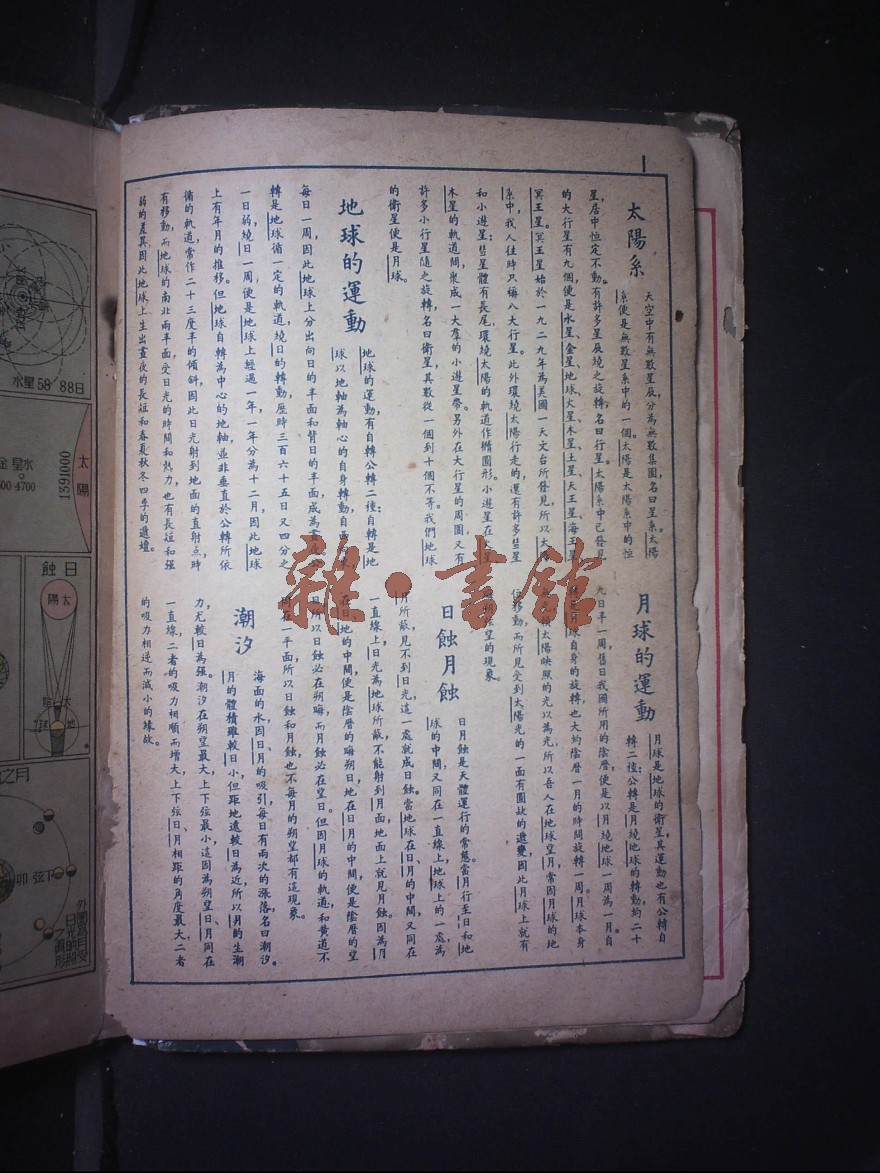 太陽系
天空中有無數星辰,分為無數集團,名曰星系。太陽
系便是無數星系中的一個。太陽是太陽系中的恒
星,居中恒定不動。有許多星辰繞之旋轉,名曰行星。太陽系中已發見
的大行星有九個,便是水星、金星、地球、火星、木星、土星、天王星、海王星、
冥王星。冥王星始於一九二九年為美國一天文台所發見,所以太陽
系中,我人往時只稱八大行星。此外環繞太陽行走的,還有許多彗星
和小遊星;彗星體有長尾,環繞太陽的軌道作橢圓形。小遊星在火星
木星的軌道間,聚成一大羣的小遊星帶。另外在大行星的周圍,又有
許多小行星隨之旋轉,名曰衛星,其數從一個到十個不等。我們地球
的衛星便是月球。
地球的運動
地球的運動,有自轉公轉二種:自轉是地
球以地軸為軸心的自身轉動,自西向東
每日一周,因此地球上分出向日的半面和背日的半面,成為晝夜。公
轉是地球循一定的軌道,繞日的轉動,歷時三百六十五日又四分之
一日弱,繞日一周,便是地球上經過一年,一年分為十二月,因此地球
上有年月的推移。但地球自轉為中心的地軸,並非垂直於公轉所依
循的軌道,常作二十三度半的傾斜,因此日光射到地面的直射點,時
有移動,而地球的南北兩半面,受日光的時間和熱力,也有長短和強
弱的差異,因此地球上生出晝夜的長短和春夏秋冬四季的遞嬗。
月球的運動
月球是地球的衛星,其運動也有公轉自
轉二種:公轉是月繞地球的轉動,約二十
九日半一周,舊日我國所用的陰曆,便是以月繞地球一周為一月。自
轉是月球自身的旋轉,也大約陰曆一月的時間旋轉一周。月球本身
太陽映照的光以為光,所以吾人在地球望月,常因月球的地
位移動,而所見受到太陽光的一面有圓缺的遞變,因此月球上就有
望的現象。
日蝕月蝕
日月蝕是天體運行的常態。當月行至日和地
球的中間,又同在一直線上,地球上的一處,為
月所蔽,見不到日光,這一處就成日蝕。當地球在日、月的中間,又同在
一直線上,日光為地球所蔽,不能射到月面,地面上就見月蝕。因為月
在日、地的中間,便是陰曆的晦朔日,地在日、月的中間,便是陰曆的望
日,所以日蝕必在朔晦,而月蝕必在望日。但因月球的軌道,和黃道不
同在一平面,所以日蝕和月蝕,也不每月的朔望都有這現象。
潮汐
海面的水,因日、月的吸引,每日有兩次的漲落,名曰潮汐。
月的體積雖較日小,但距地遠較日為近,所以月的生潮
力,尤較日為強。潮汐在朔望最大,上下弦最小,這因為朔望日、月同在
一直線,二者的吸力相順而增大,上下弦日、月相距的角度最大,二者
的吸力相逆而減小的緣故。
雜·書館
水星58/88日
太陽
1391000
水星
4700
日蝕
太陽
下弦
卯